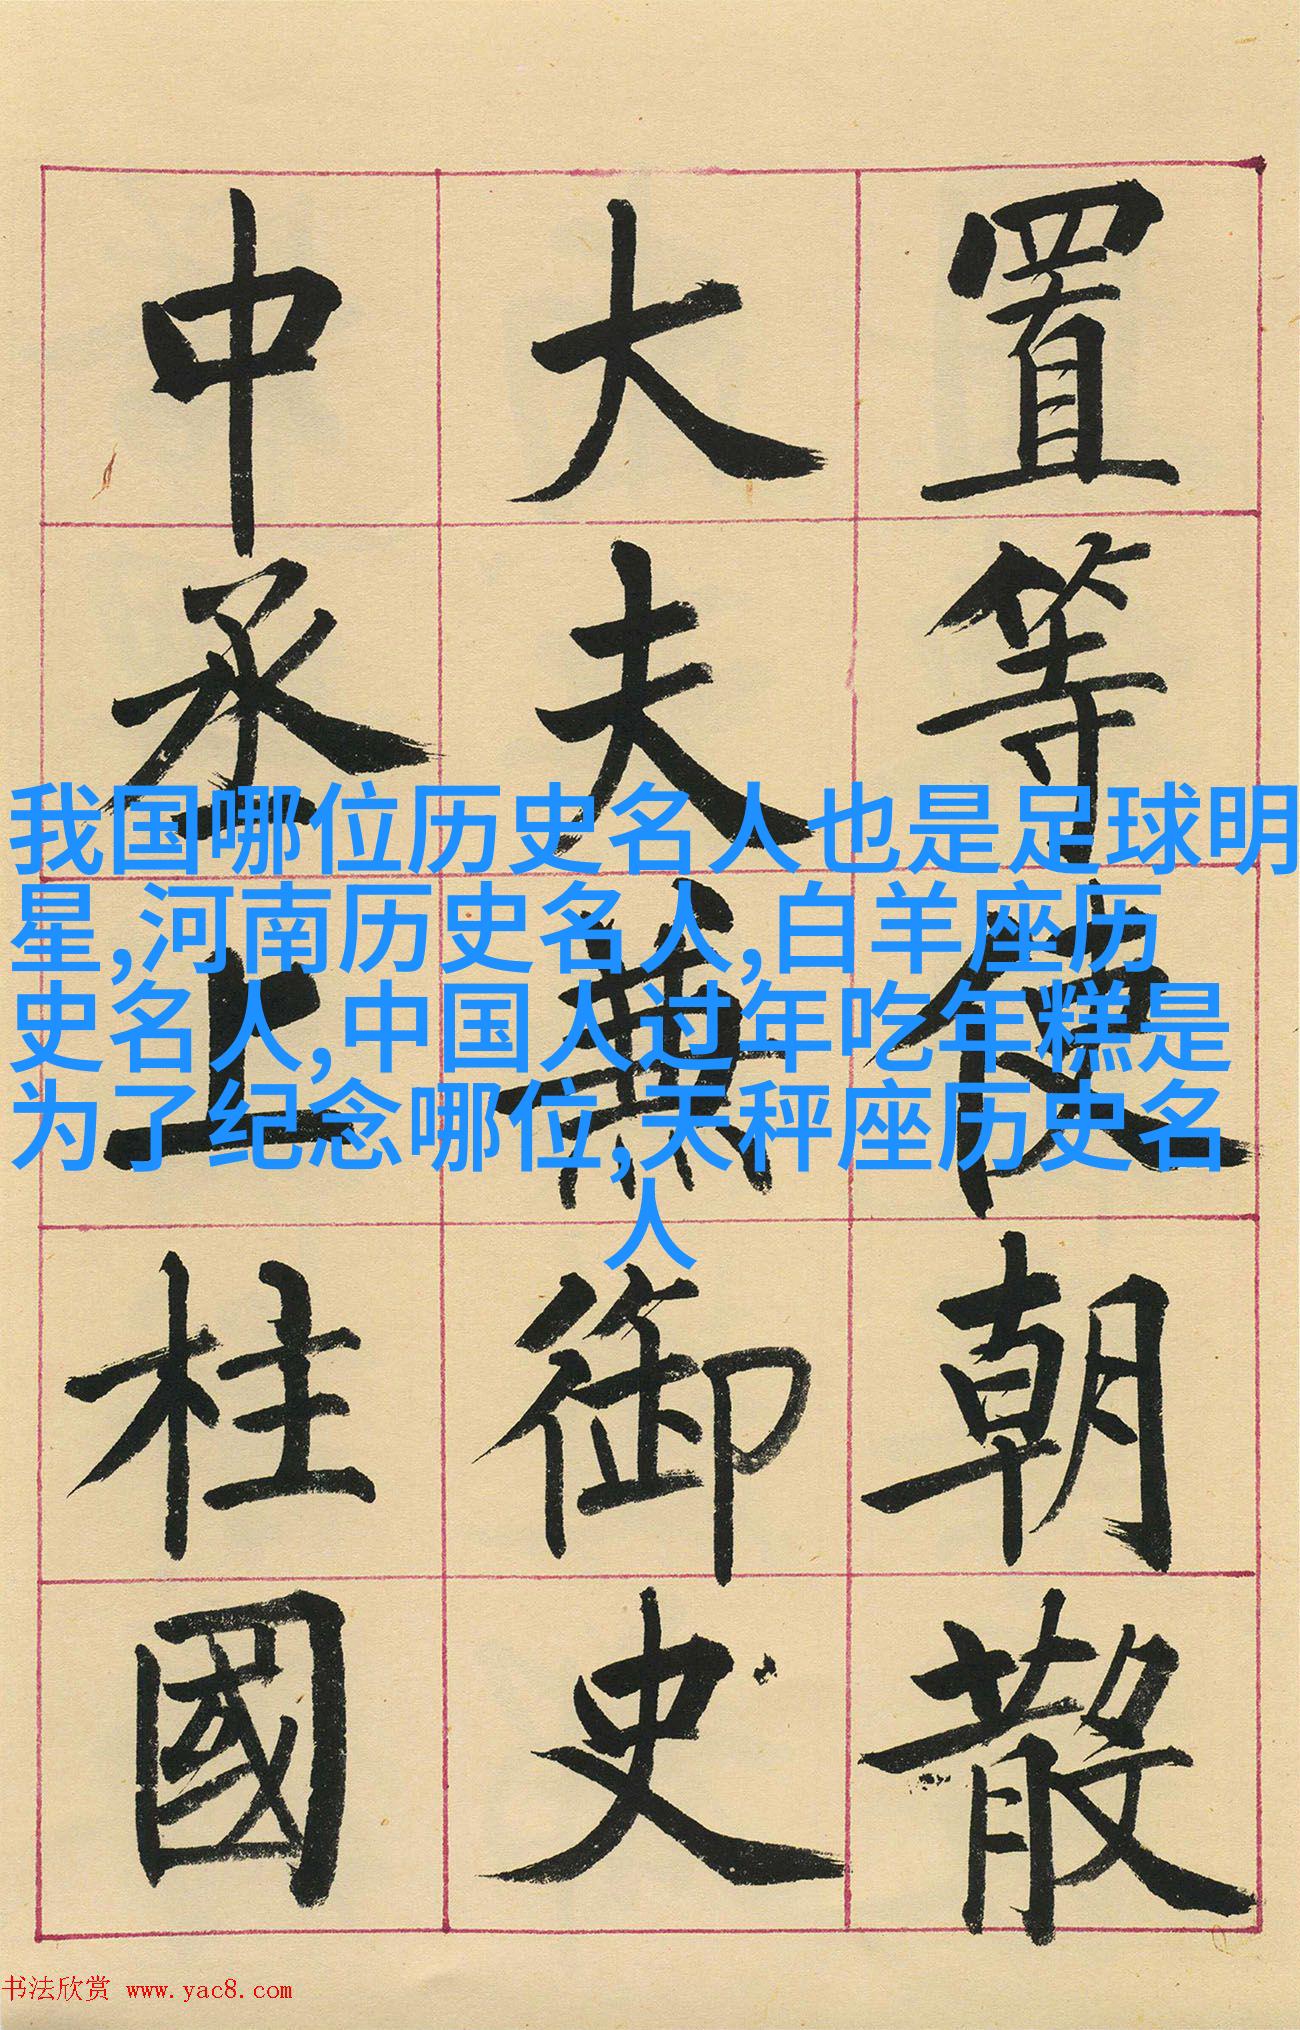 置等使朝散
大夫兼御史
中丞上柱國
我国哪位历史名人也是足球明
星,河南历史名人,白羊座历
史名人,中国人过年吃年糕是
为了纪念哪位,天秤座历史名
人
书法欣赏 www.yac8.com